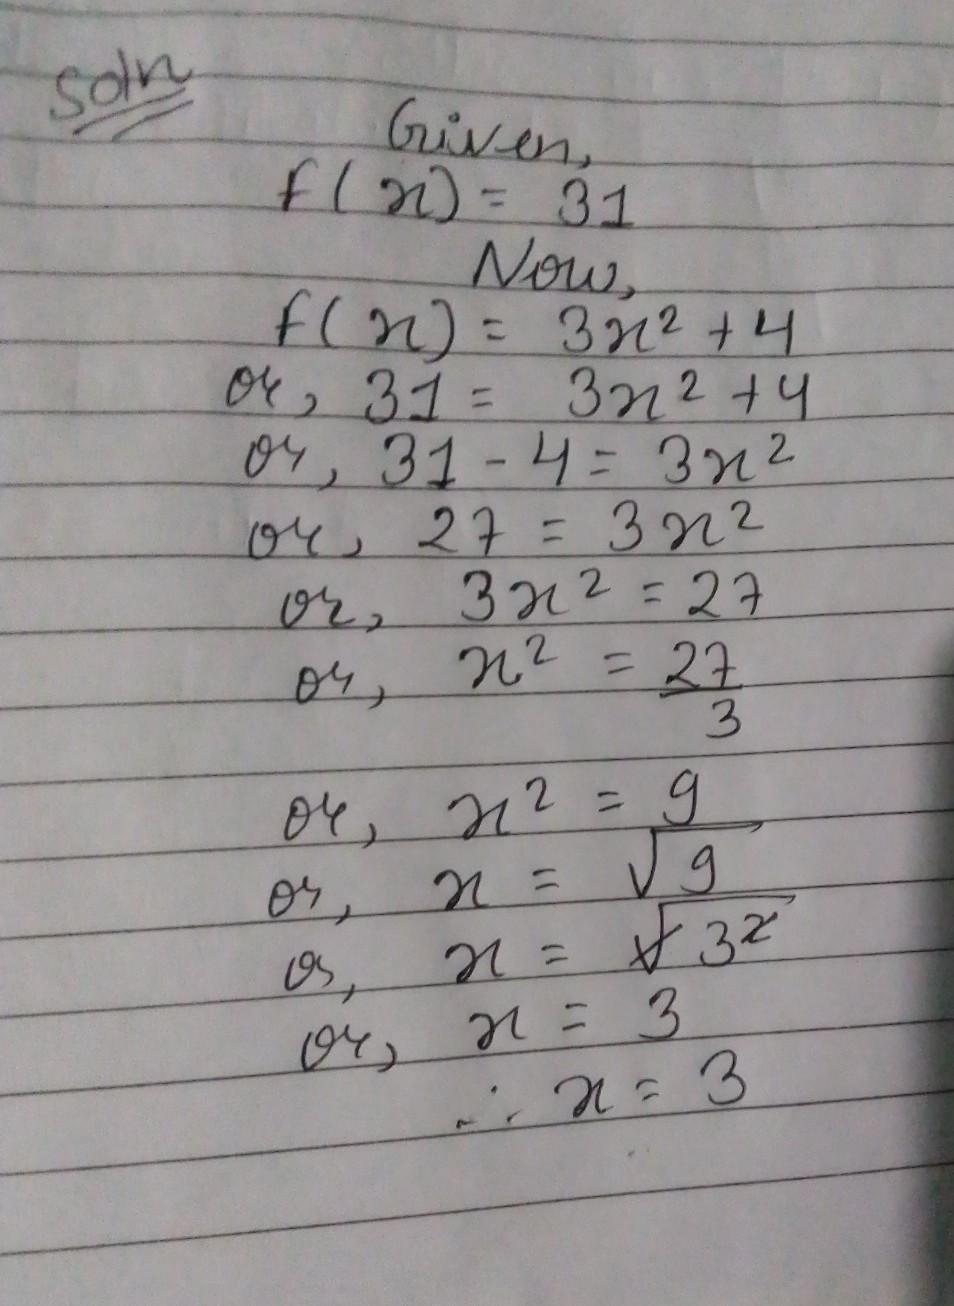 Soln
Given,
f(x) = 31
Now,
f(x) = 3x² + 4
or, 31 = 3x² + 4
or, 31 - 4 = 3x²
or, 27 = 3x²
or, 3x² = 27
or, x² = 27/3
or, x² = 9
or, x = √9
or, x = √3²
or, x = 3
∴ x = 3